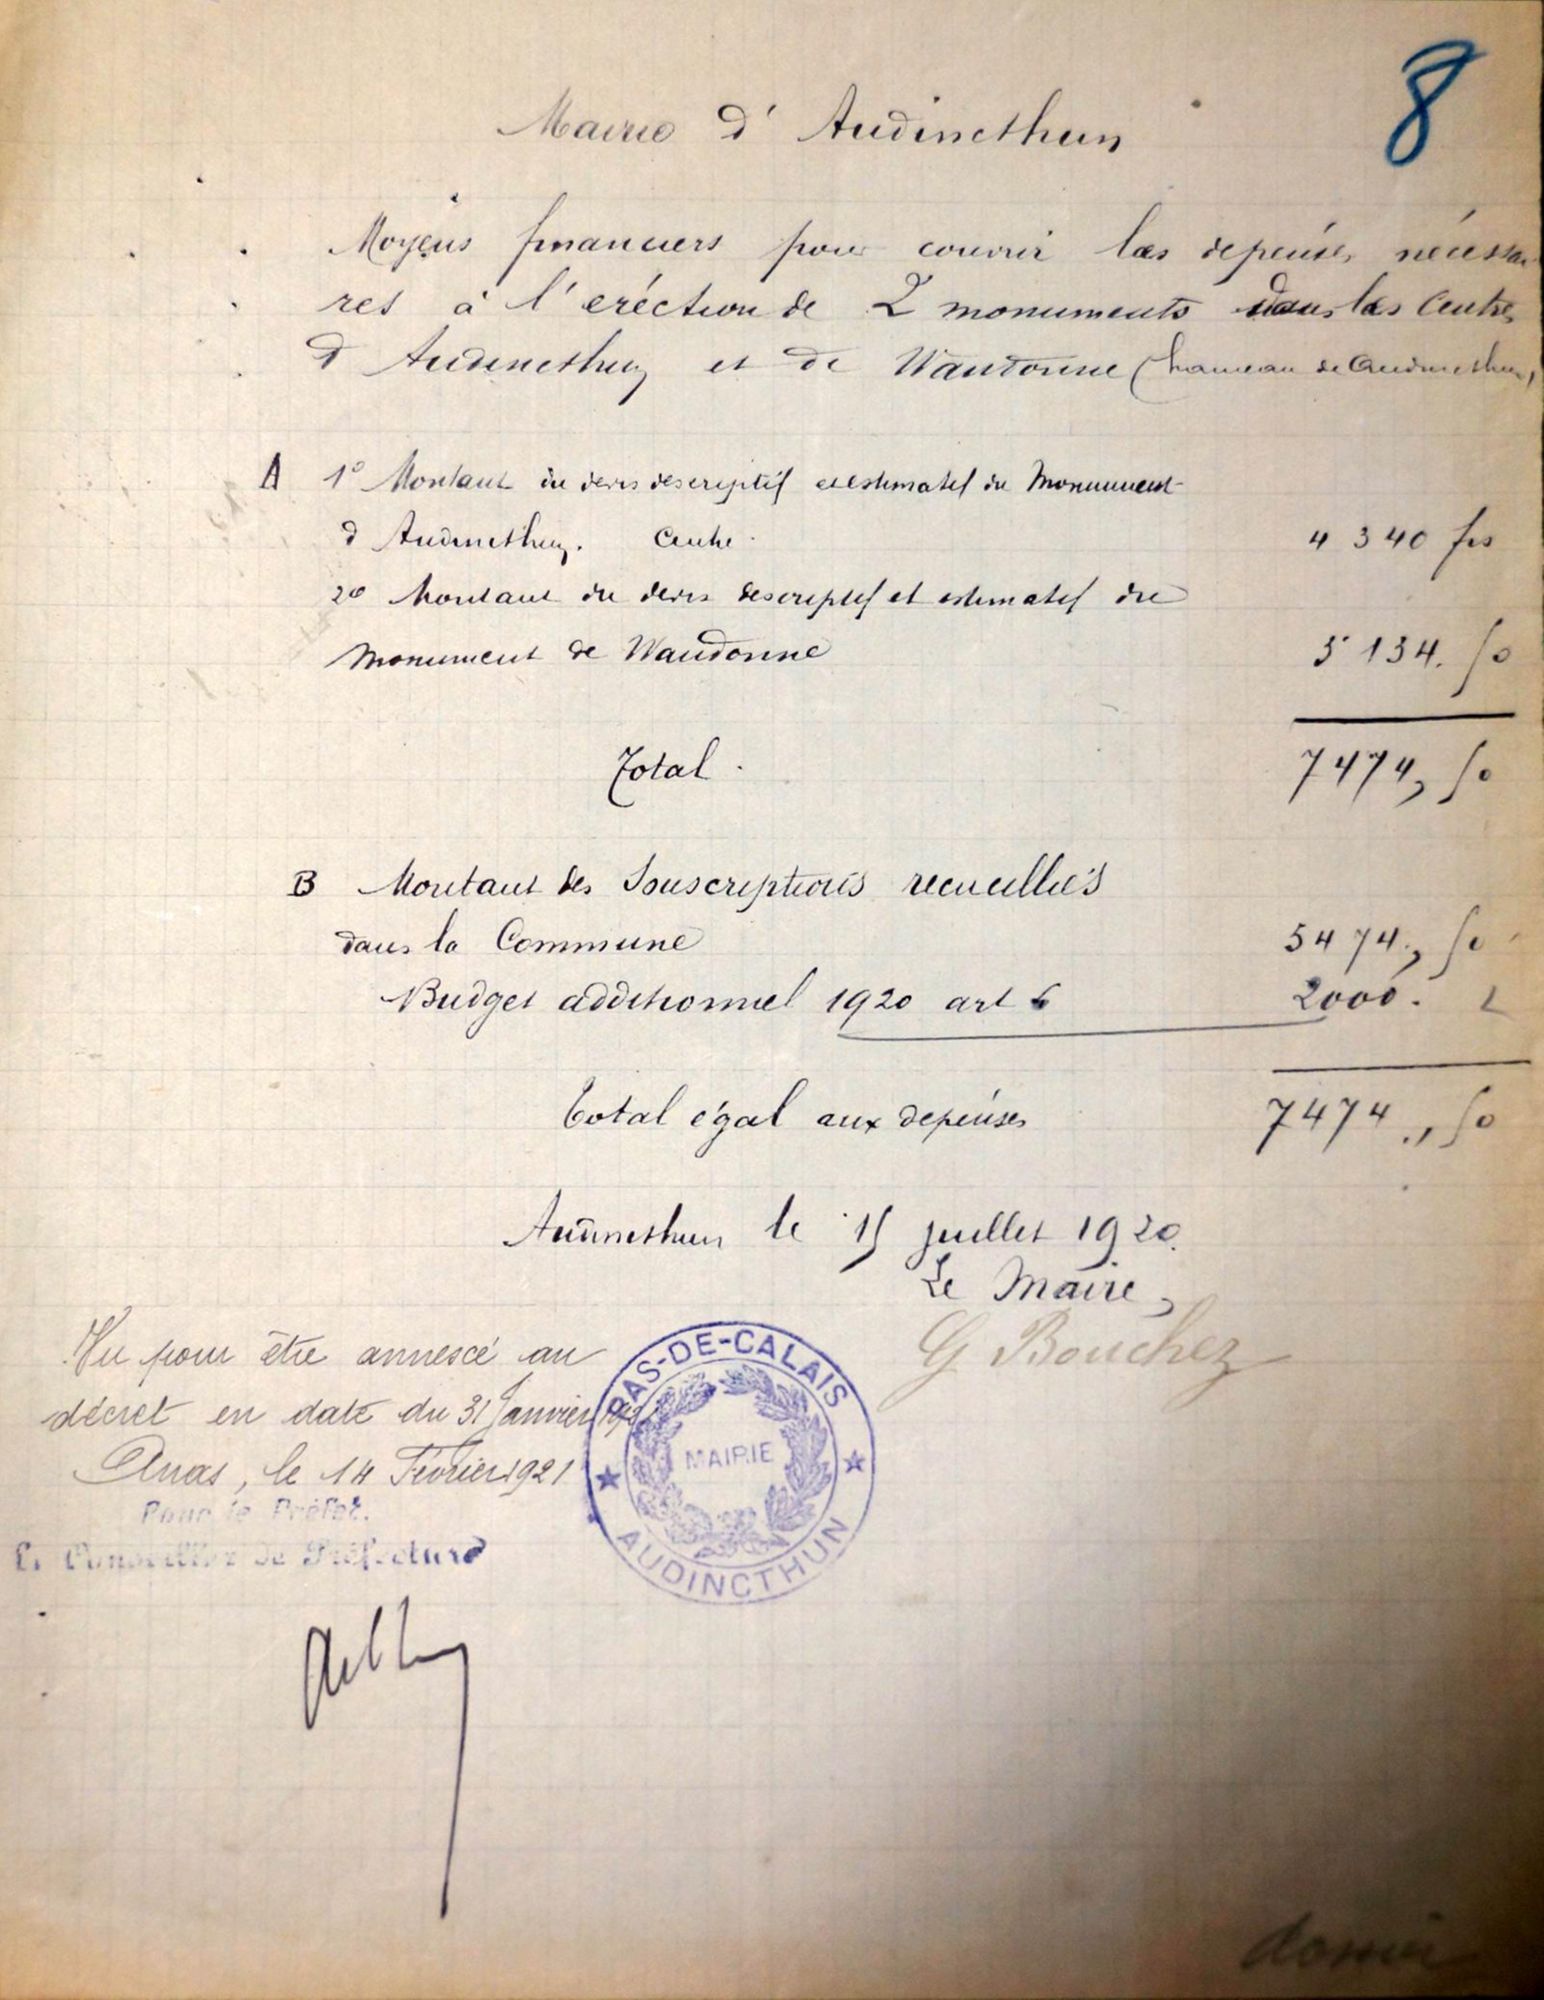 8
Mairie d' Audincthun
Moyens financiers pour couvrir les depenses nécessai-
res à l'eréction de 2 monuments dans les Centres
d'Audincthun et de Wandonne (hameau de Audincthun)
A 1° Montant du devis descriptif et estimatif du Monument
d'Audincthun. Centre. 4 340 frs
2° Montant du devis descriptif et estimatif du
Monument de Wandonne 3 134. 50
Total. 7474, 50
B Montant des Souscriptions recueillies
dans la Commune 5474., 50
Budget additionnel 1920 art 6 2000.
Total égal aux depenses 7474., 50
Audincthun le 15 juillet 1920.
Le Maire,
G Bouchez
Vu pour être annexé au
décret en date du 31 Janvier 1921
Arras, le 14 Février 1921
Pour le Préfet.
Le Conseiller de Préfecture
PAS-DE-CALAIS
MAIRIE
AUDINCTHUN